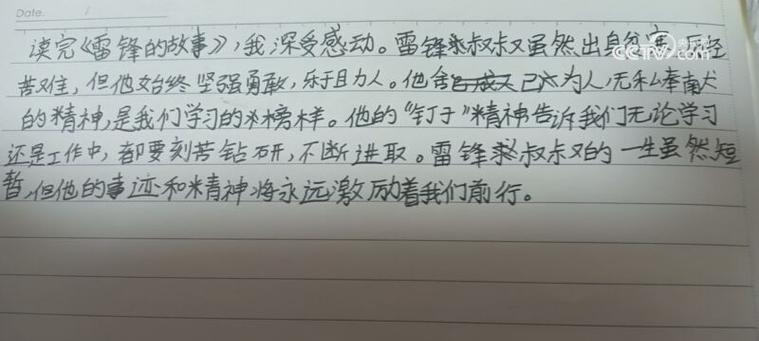 Date.
CCTV
读完《雷锋的故事》，我深受感动。雷锋叔叔虽然出身贫寒，历经
苦难，但他始终坚强勇敢，乐于助人。他舍己为人，无私奉献
的精神，是我们学习的榜样。他的“钉子”精神告诉我们无论学习
还是工作中，都要刻苦钻研，不断进取。雷锋叔叔的一生虽然短
暂，但他的事迹和精神将永远激励着我们前行。